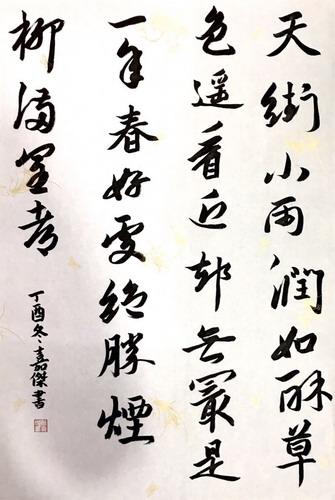 天街小雨潤如酥草
色遥看近却無最是
一年春好處絶勝煙
柳滿皇都
丁酉冬嘉傑書